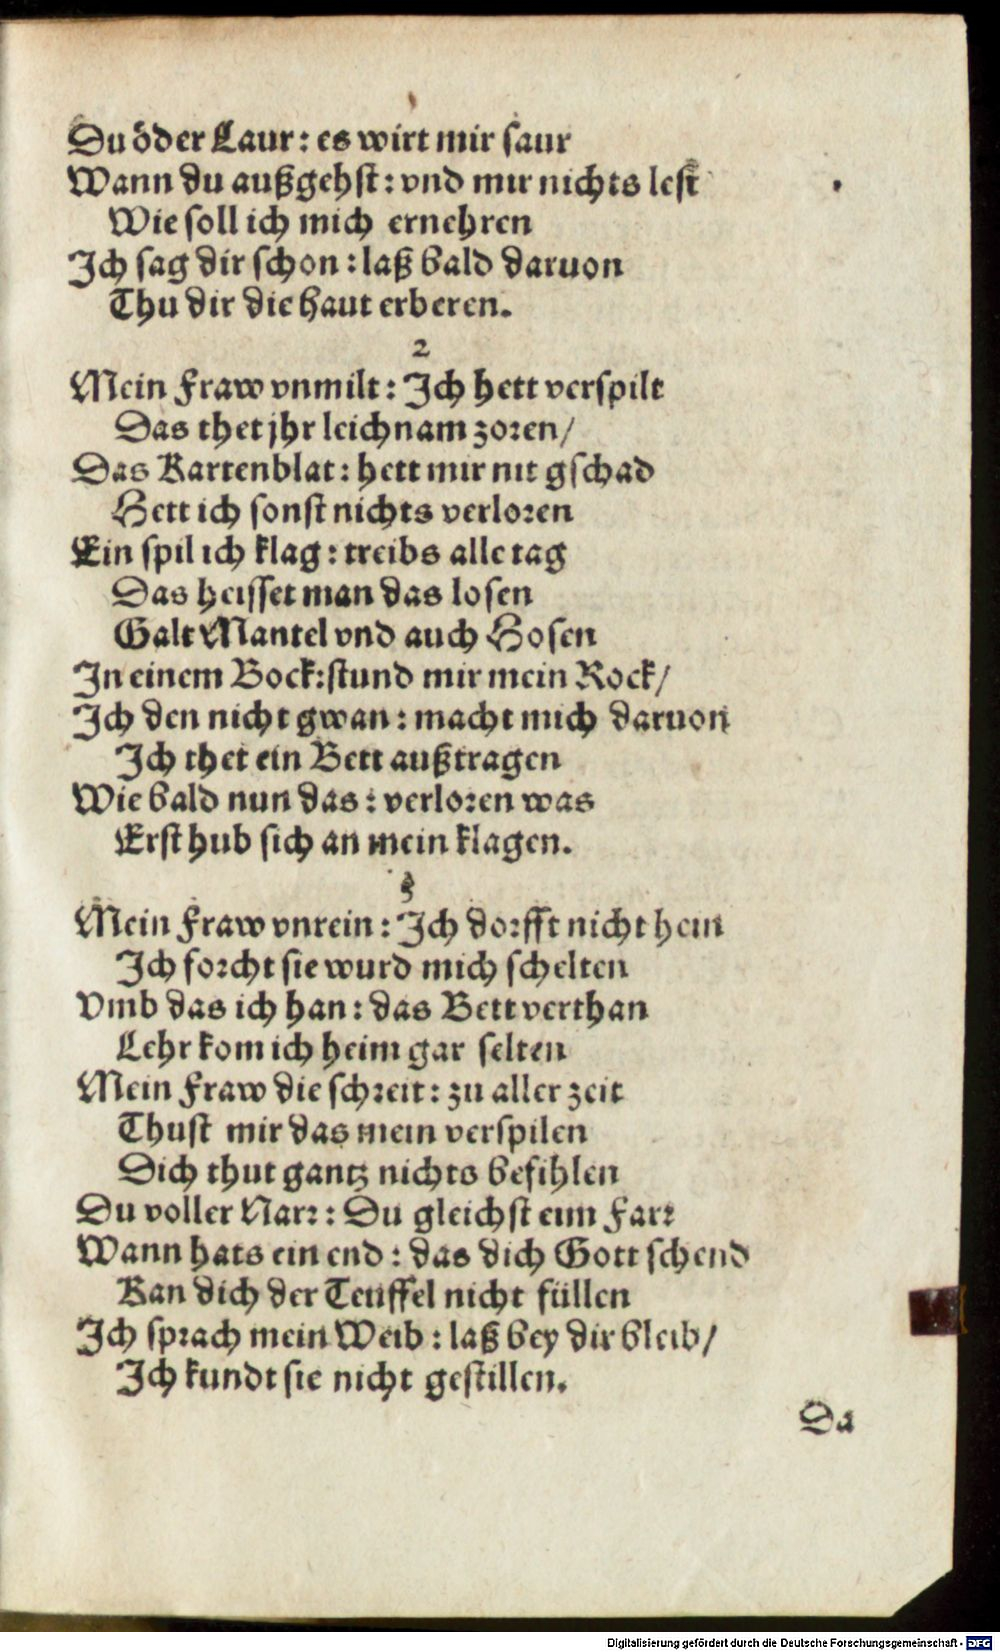 Du öder Laur: es wirt mir saur
Wann du außgehst: vnd mir nichts lest
Wie soll ich mich ernehren
Ich sag dir schon: laß bald daruon
Thu dir die haut erberen.
2
Mein Fraw vnmilt: Ich hett verspilt
Das thet jhr leichnam zoren/
Das Kartenblat: hett mir nit gschad
Hett ich sonst nichts verloren
Ein spil ich klag: treibs alle tag
Das heisset man das losen
Galt Mantel vnd auch Hosen
In einem Bock: stund mir mein Rock/
Ich den nicht gwan: macht mich daruon
Ich thet ein Bett außtragen
Wie bald nun das: verloren was
Erst hub sich an mein klagen.
3
Mein Fraw vnrein: Ich dorfft nicht hein
Ich forcht sie wurd mich schelten
Vmb das ich han: das Bett verthan
Lehr kom ich heim gar selten
Mein Fraw die schreit: zu aller zeit
Thust mir das mein verspilen
Dich thut gantz nichts befihlen
Du voller Narr: Du gleichst eim Farr
Wann hats ein end: das dich Gott schend
Kan dich der Teuffel nicht füllen
Ich sprach mein Weib: laß bey dir bleib/
Ich kundt sie nicht gestillen.
Da
Digitalisierung gefördert durch die Deutsche Forschungsgemeinschaft - DFG